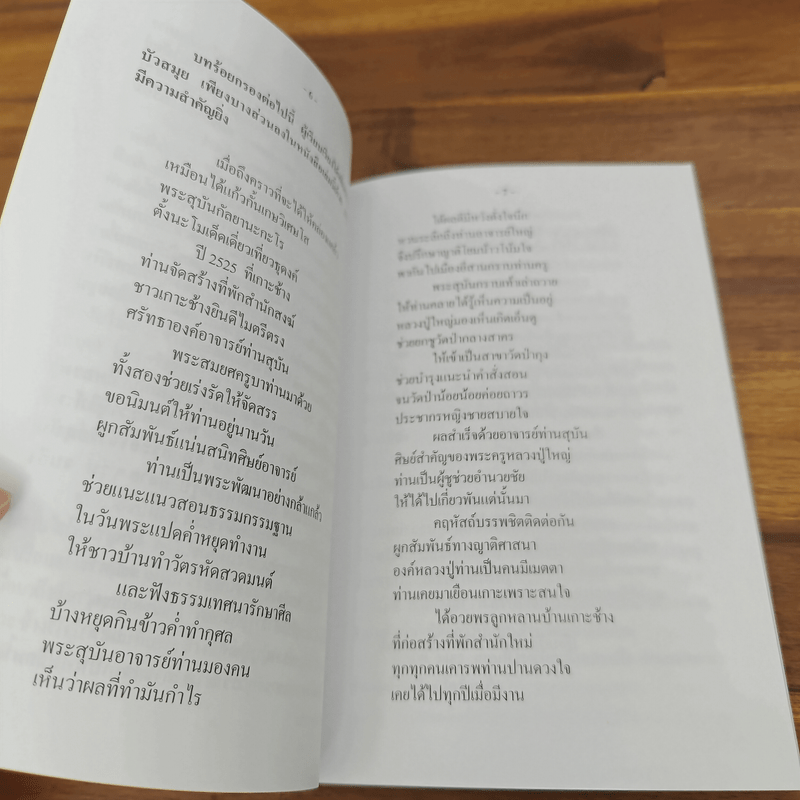 - ๖ -
บทร้อยกรองต่อไปนี้ ผู้เขียน
บัวสมุย เพียงบางส่วนลงในหนังสือ
มีความสำคัญยิ่ง
เมื่อถึงคราวที่จะได้ให้
เหมือนได้แก้วกั้นเกษวิเศษโส
พระสุบันกัลยานะกะโร
ตั้งนะโมเด็ดเดี่ยวเที่ยวธุดงค์
ปี 2525 ที่เกาะช้าง
ท่านจัดสร้างที่พักสำนักสงฆ์
ชาวเกาะช้างยินดีไมตรีตรง
ศรัทธาองค์อาจารย์ท่านสุบัน
พระสมยศครูบาท่านมาด้วย
ทั้งสองช่วยเร่งรัดให้จัดสรร
ขอนิมนต์ให้ท่านอยู่นานวัน
ผูกสัมพันธ์แน่นสนิทศิษย์อาจารย์
ท่านเป็นพระพัฒนาอย่างกล้าแกล้ว
ช่วยแนะแนวสอนธรรมกรรมฐาน
ในวันพระแปดค่ำหยุดทำงาน
ให้ชาวบ้านทำวัตรหัดสวดมนต์
และฟังธรรมเทศนารักษาศีล
บ้างหยุดกินข้าวค่ำทำกุศล
พระสุบันอาจารย์ท่านมองคน
เห็นว่าผลที่ทำมันกำไร
- ๗ -
ได้ผลดีมีหวังตั้งใจนึก
ท่านอาจารย์ใหญ่
จึงปรึกษาญาติโยมน้าวโน้มใจ
พากันไปเมืองกราบท่านครู
พระสุบันกราบเท้าเล่าถวาย
ให้ท่านคลายได้รู้เห็นความเป็นอยู่
หลวงปู่ใหญ่มองเห็นเกิดเอ็นดู
ช่วยยกชูวัดป่ากลางสาคร
ให้เข้าเป็นสาขาวัดป่ากุง
ช่วยบำรุงแนะนำคำสั่งสอน
จนวัดป่าน้อยน้อยค่อยถาวร
ประชากรหญิงชายสบายใจ
ผลสำเร็จด้วยอาจารย์ท่านสุบัน
ศิษย์สำคัญของพระครูหลวงปู่ใหญ่
ท่านเป็นผู้ชูช่วยอำนวยชัย
ให้ได้ไปเกี่ยวพันแต่นั้นมา
คฤหัสถ์บรรพชิตติดต่อกัน
ผูกสัมพันธ์ทางญาติศาสนา
องค์หลวงปู่ท่านเป็นคนมีเมตตา
ท่านเคยมาเยือนเกาะเพราะสนใจ
ได้อวยพรลูกหลานบ้านเกาะช้าง
ที่ก่อสร้างที่พักสำนักใหม่
ทุกทุกคนเคารพท่านปานดวงใจ
เคยได้ไปทุกปีเมื่อมีงาน